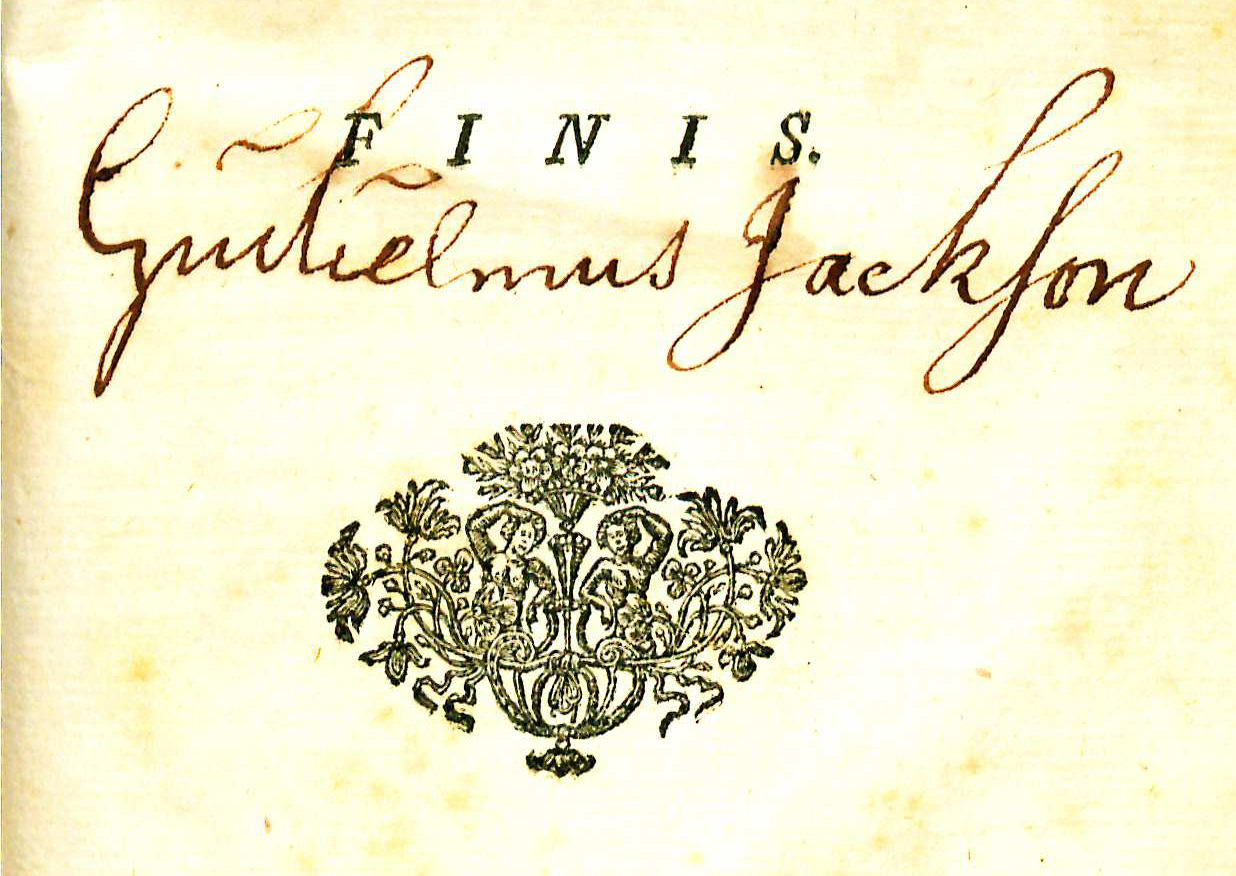 F I N I S.
Guilielmus Jackſon